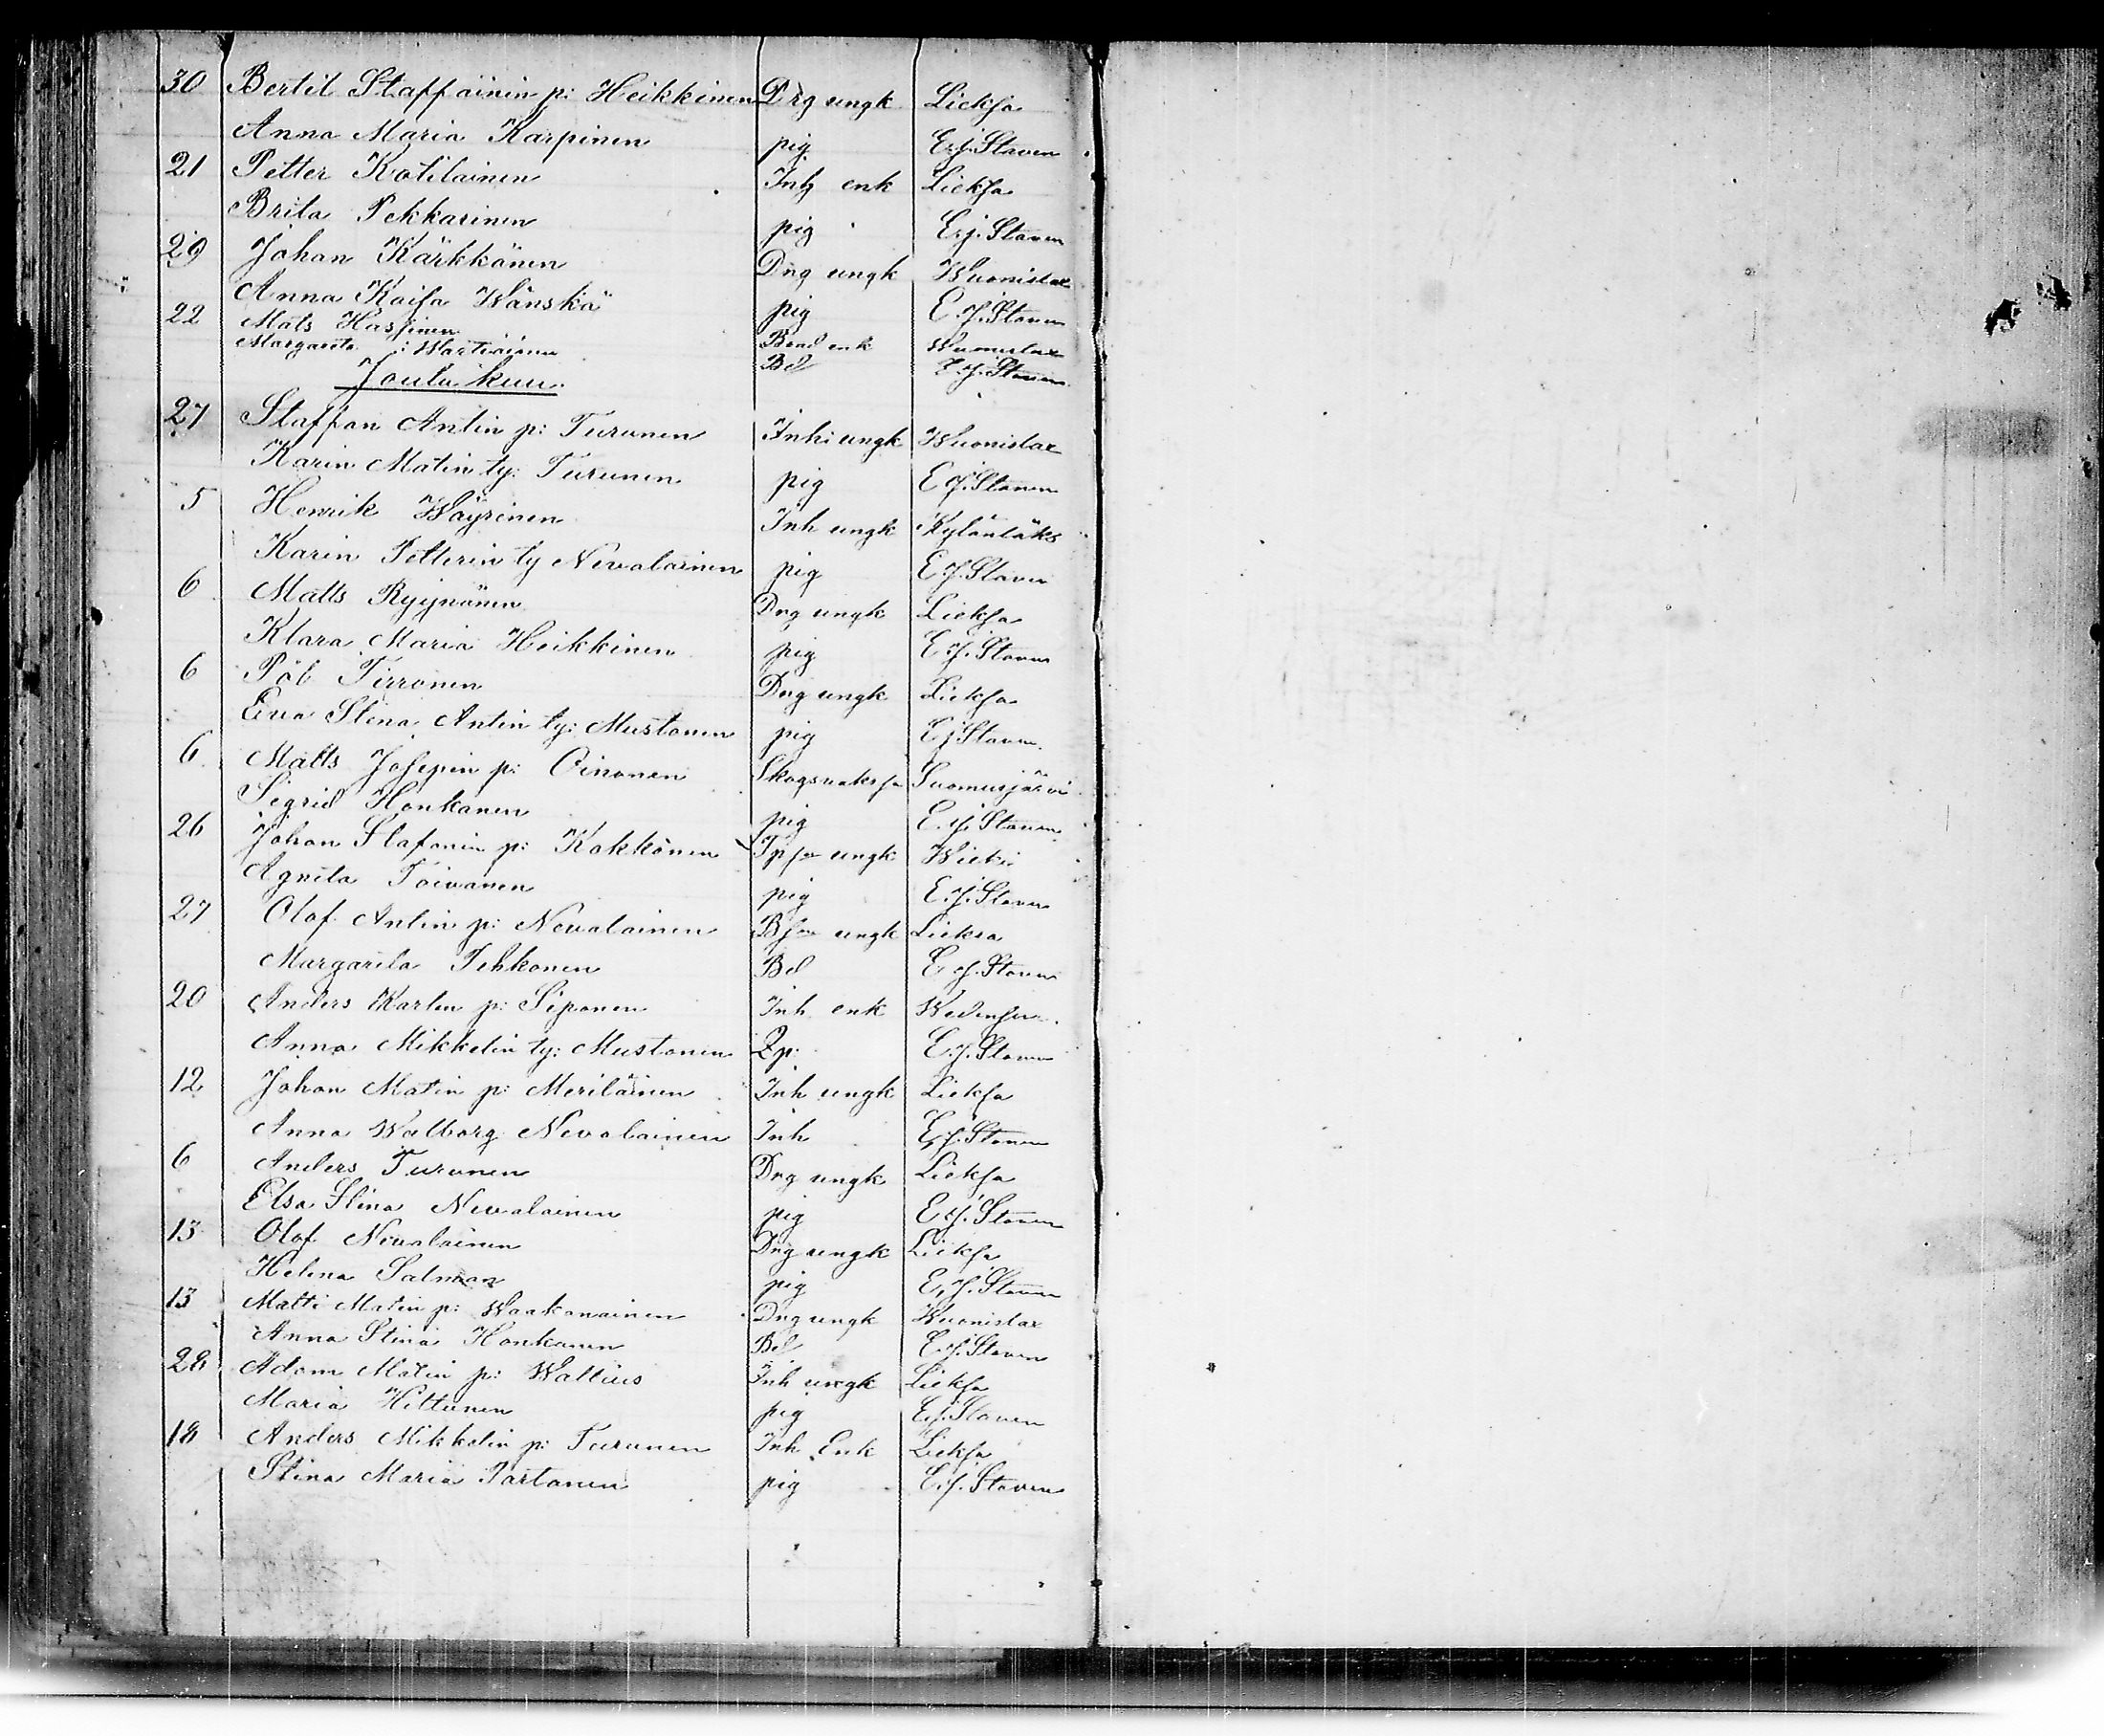 30 Bertil Staffainin p: Heikkinen Drg ungk Lieksa
Anna Maria Karpinen pig E. j. Staven
21 Petter Kotilainen Inh enk Lieksa
Brita Pekkarinen pig E. j. Staven
29 Johan Kärkkönen Drg ungk Wuonislax
Anna Kaisa Wänskä pig E. j. Staven
22 Mats Hassinen Bond enk Wuonislax
Margareta Wartiainen Bd E. j. Staven
Joulukuu.
27 Staffan Antin p: Turunen Inh: ungk Wuonislax
Karin Matin ty: Turunen pig E. j. Staven
5 Henrik Wäyrinen Inh ungk Kylänläks
Karin Petterin ty Nevalainen pig E. j. Staven
6 Matts Ryynänen Drg ungk Lieksa
Klara Maria Heikkinen pig E. j. Staven
6 Pål Tirronen Drg ungk Lieksa
Eva Stina Antin ty: Mustonen pig E. j. Staven
6 Matts Josepin p: Oinonen Suomusjärvi
Sigrid Honkanen pig E. j. Staven
26 Johan Stafanin p: Kokkönen ungk Wieki
Agnita Toivanen pig E. j. Staven
27 Olof Antin p: Nevalainen Bso ungk Lieksa
Margareta Tehkonen Bd E. j. Staven
20 Anders Karlin p: Siponen Inh enk
Anna Mikkelin ty: Mustonen Qp: E. j. Staven
12 Johan Matin p: Meriläinen Inh ungk Lieksa
Anna Walborg Nevalainen Inh E. j. Staven
6 Anders Turunen Drg ungk Lieksa
Elsa Stina Nevalainen pig E. j. Staven
13 Olof Nevalainen Drg ungk Lieksa
Helena Salman pig E. j. Staven
13 Matti Matin p: Waakanainen Drg ungk Wuonislax
Anna Stina Honkanen Bd E. j. Staven
28 Adam Matin p: Wallius Inh ungk Lieksa
Maria Hiltunen pig E. j. Staven
18 Anders Mikkelin p: Turunen Inh Enk Lieksa
Stina Maria Partanen pig E. j. Staven